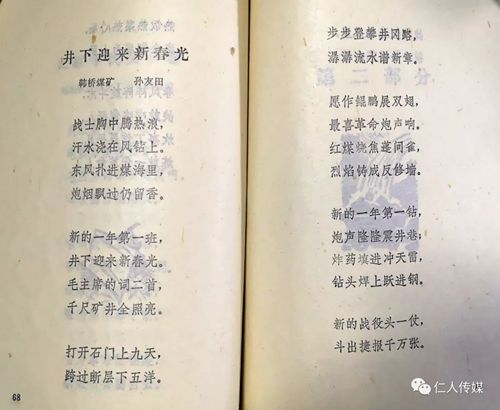 井下迎来新春光
韩桥煤矿 孙友田
战士胸中腾热浪，
汗水浇在风钻上。
东风扑进煤海里，
炮烟飘过仍留香。
新的一年第一班，
井下迎来新春光。
毛主席的词二首，
千尺矿井全照亮。
打开石门上九天，
跨过断层下五洋。
68
步步登攀井冈路，
潺潺流水谱新章。
愿作鲲鹏展双翅，
最喜革命炮声响。
红煤烧焦蓬间雀，
烈焰铸成反修墙。
新的一年第一钻，
炮声隆隆震井巷；
炸药填进冲天雷，
钻头焊上跃进钢。
新的战役头一仗，
斗出捷报千万张。
仁人传媒